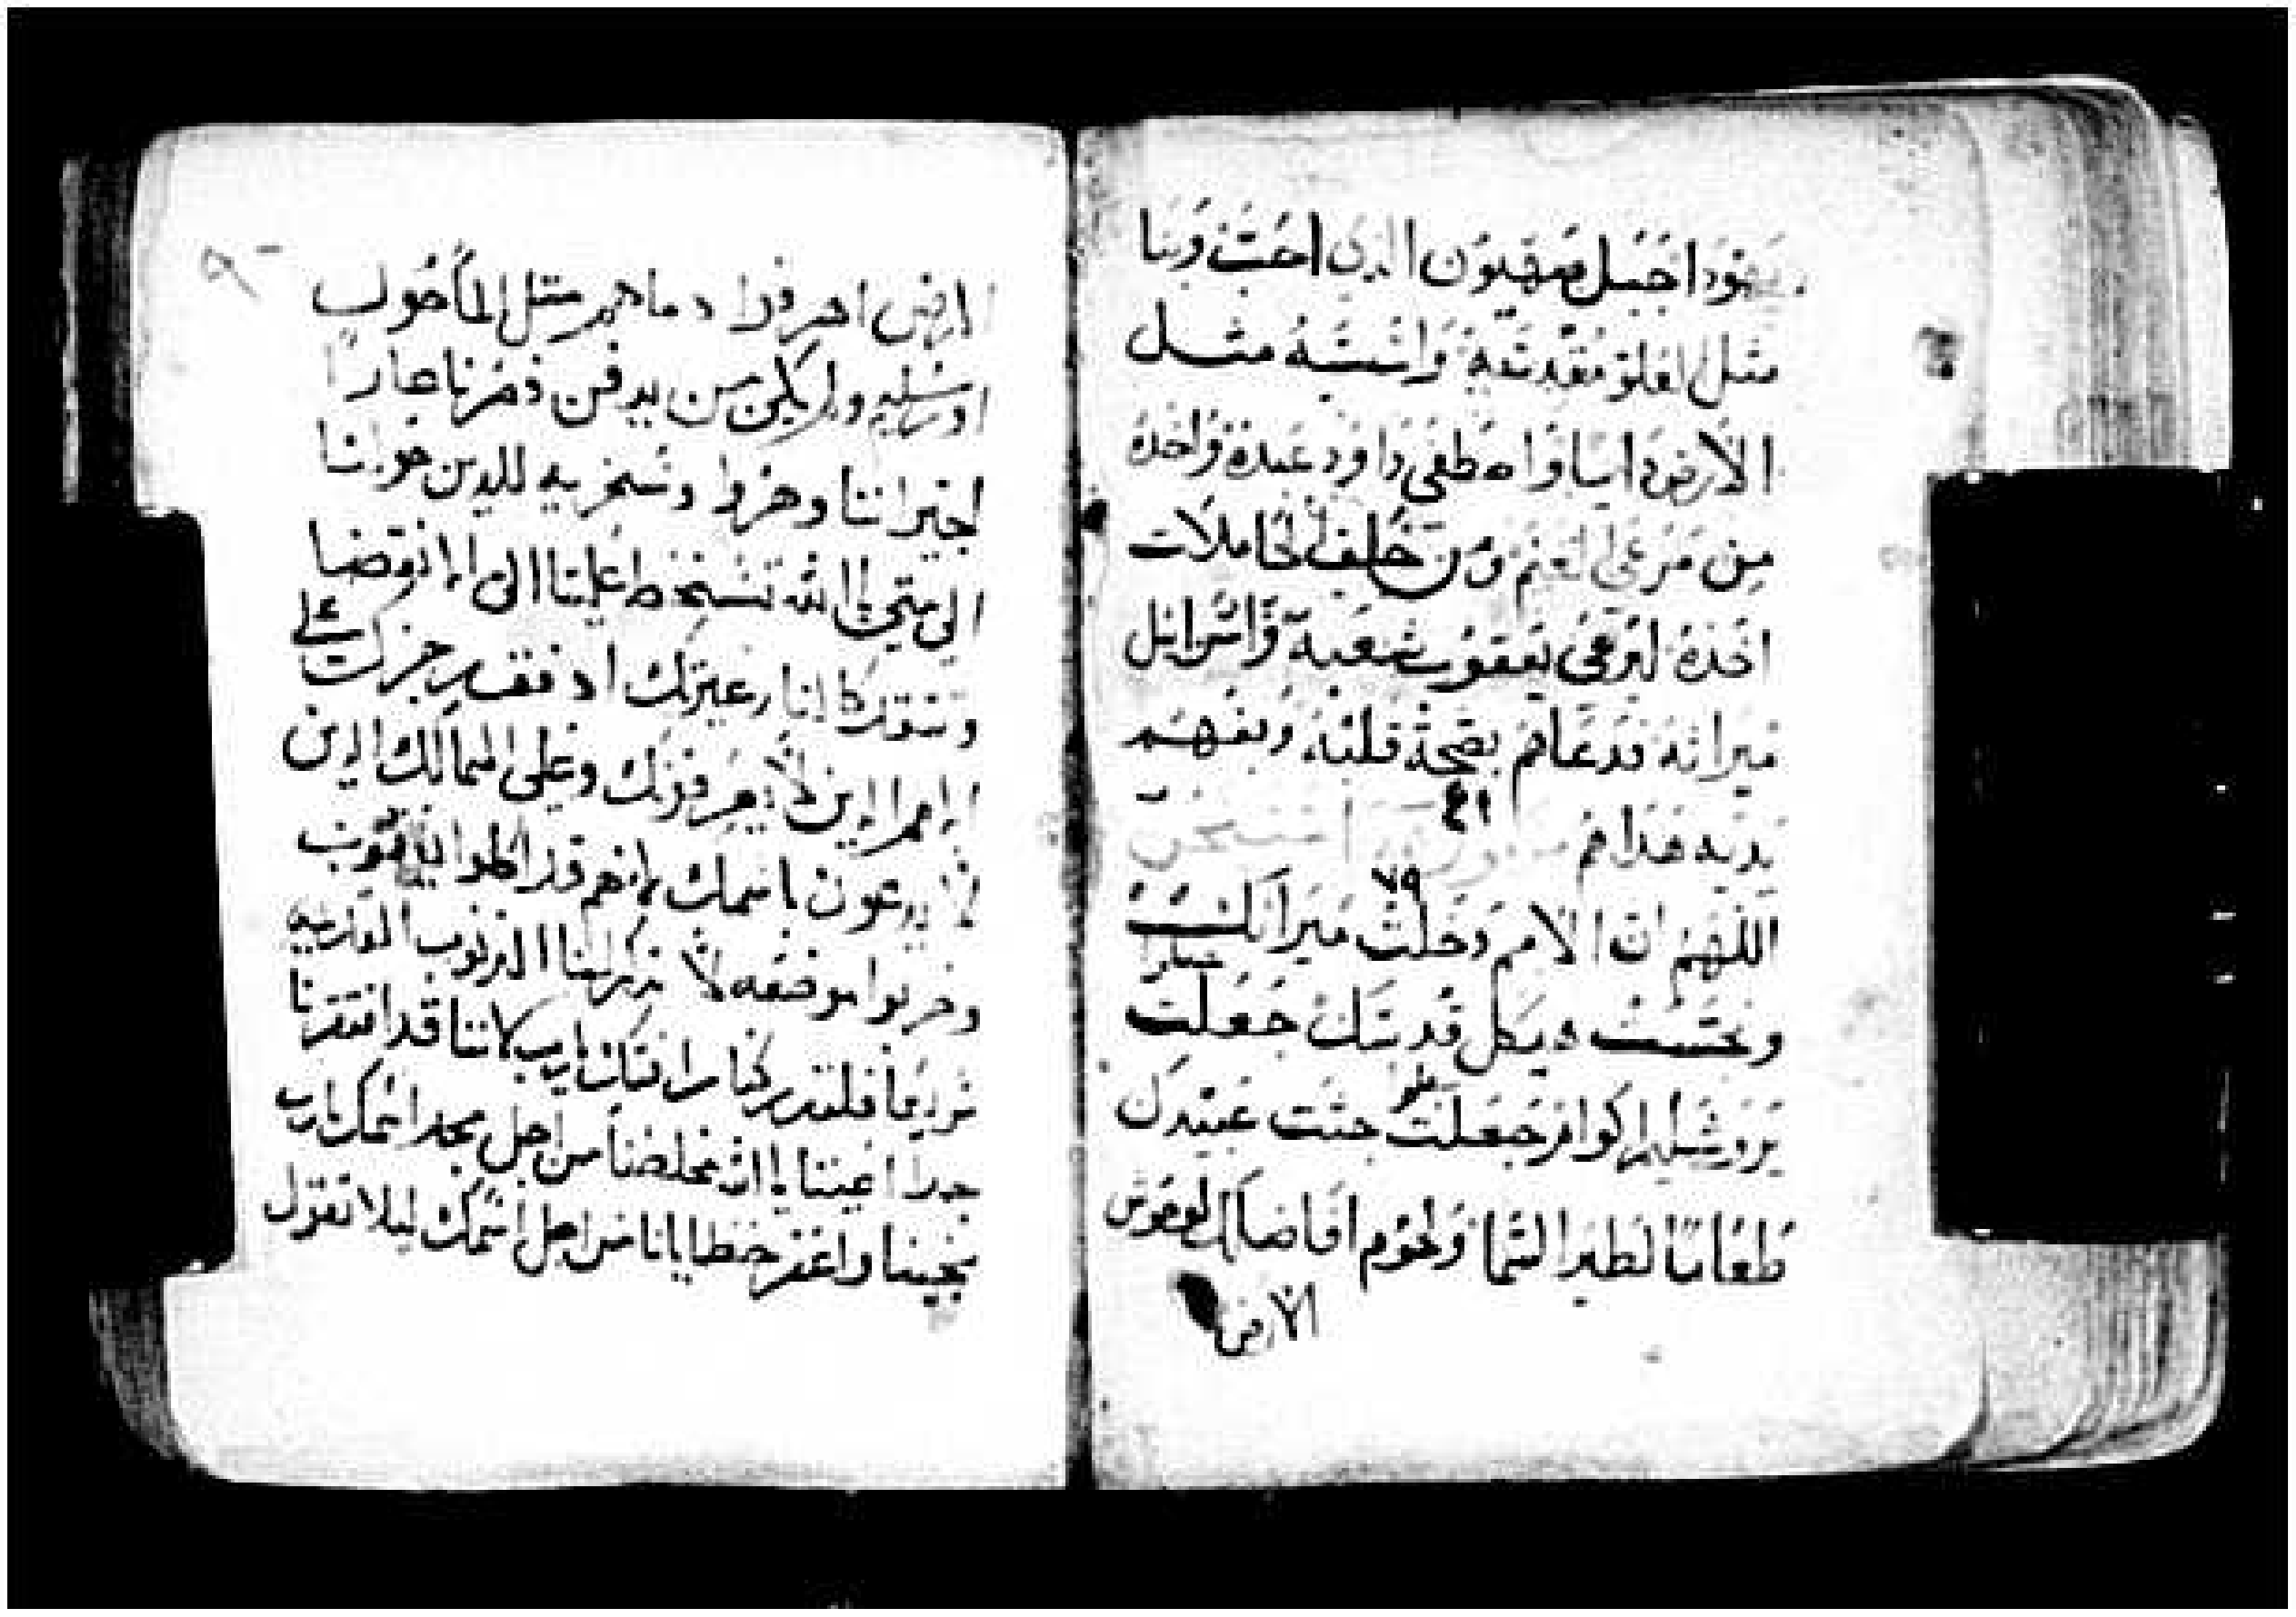 يهودا جبل صهيون الذي احب وبنا
مثل العلو مقدسه واسسه مثل
الارض ابدا واصطفى داود عبده واخذه
من مرعى الغنم ومن خلف الحاملات
اخذه ليرعى يعقوب شعبه واسرائيل
ميراثه فدعاهم بصحة قلبه وبفهم
يديه هداهم
٧٩
اللهم ان الامم دخلت ميراثك
ونجست هيكل قدسك جعلت
يروشليم كوافر جعلت جثث عبيدك
طعاما لطير السما ولحوم افاضلك لوحوش
الارض
الارض اهرقوا دماهم مثل الما حول
اورشليم ولم يكن من يدفن فصرنا عارا
لجيراننا وهزوا وسخريه للذين حولنا
الى متى يا الله تسخط علينا الى الانقضا
وتتقد كالنار غيرتك افض رجزك على
الامم الذين لا يعرفونك وعلى الممالك الذين
لا يدعون باسمك لانهم قد اكلوا يعقوب
وخربوا موضعه لا تذكر لنا الذنوب القديمه
سريعا فلتدركنا رافتك يارب لاننا قد افتقرنا
جدا اعيننا يا الله مخلصنا من اجل مجد اسمك يارب
نجينا واغفر خطايانا من اجل اسمك ليلا تقول